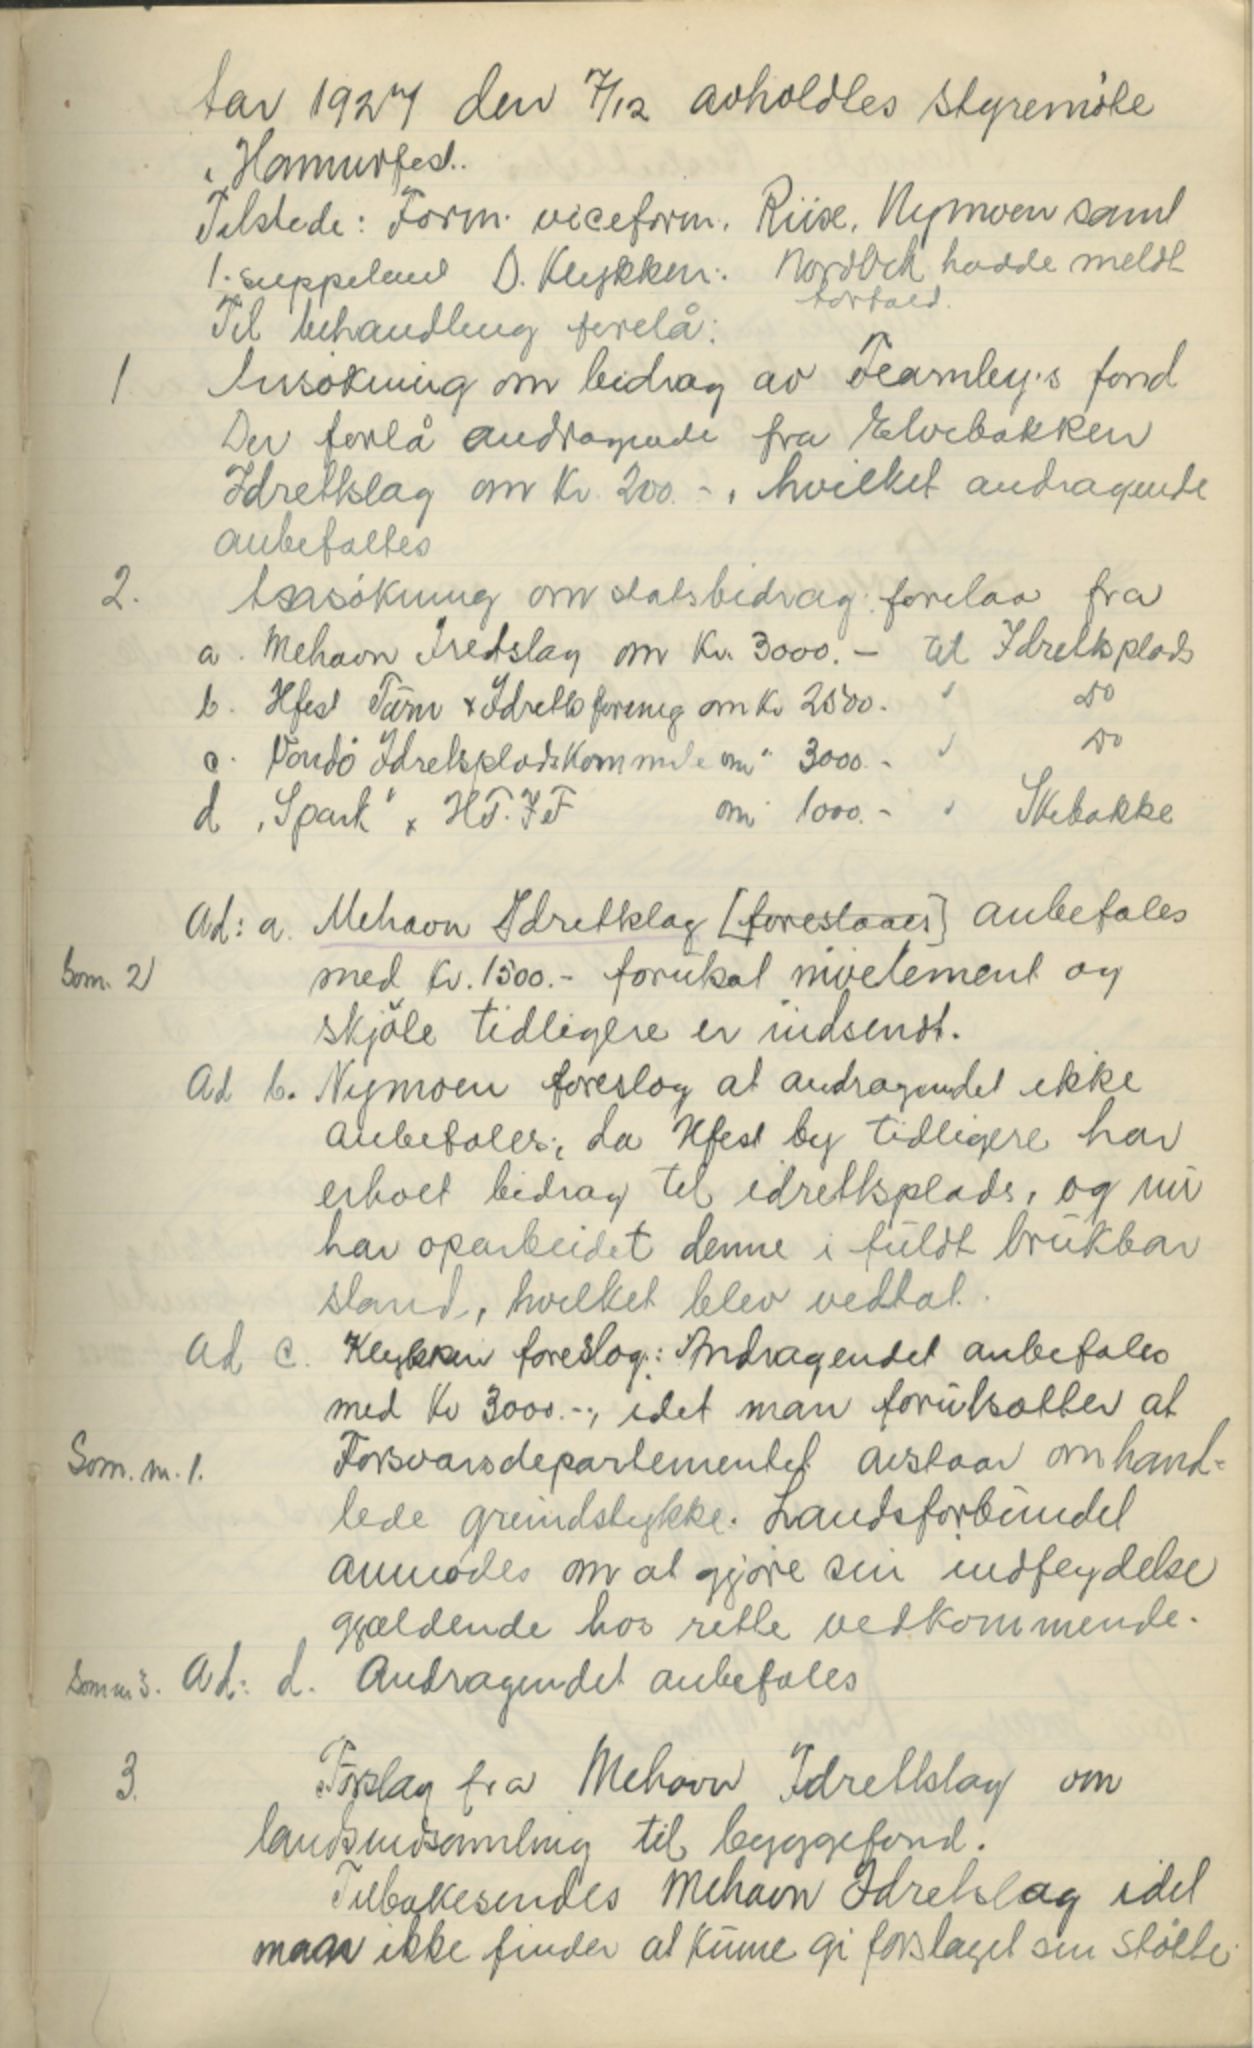 Aar 1927 den 7/12 avholdtes styremöte
i Hammerfest.
Tilstede: Form. viceform. Riise, Nymoen samt
1. suppleant D. Klykken. Nordbek hadde meldt
forfald.
Til behandling forelå:
1 Ansökning om bidrag av Fearnley's fond
Der forlå andragende fra Elvebakken
Idretslag om Kr. 200.-, hvilket andragende
anbefaltes
2. Ansökning om statsbidrag forelaa fra
a. Mehavn Iredslag om Kr. 3000.- til Idretsplads
b. Hfest Turn & Idrettsforening om Kr 2500. " Do
c. Vardö Idretsplads Komm om " 3000.- " Do
d "Spark" & HT.IF om 1000.- " Skibakke
Ad: a. Mehavn Idretslag [foreslaaes] anbefales
Som. 2 med Kr. 1500.- forutsat nivelement og
skjöte tidligere er indsendt.
Ad b. Nymoen foreslog at andragendet ikke
anbefales, da Hfest by tidligere har
erholt bidrag til idrettsplads, og nu
har oparbeidet denne i fuldt brukbar
stand, hvilket blev vedtat.
Ad c. Klykken foreslog: Andragendet anbefales
med Kr 3000.-, idet man forutsætter at
Som. m. 1. Forsvarsdepartementet avstaar omhand-
lede grundstykke. Landsforbundet
anmodes om at gjöre sin indflydelse
gjældende hos rette vedkommende.
Som m 3. Ad: d. Andragendet anbefales
3. Forslag fra Mehavn Idrettslag om
landsindsamling til byggefond.
Tilbakesendes Mehavn Idretslag idet
man ikke finder at kunne gi forslaget sin stötte.